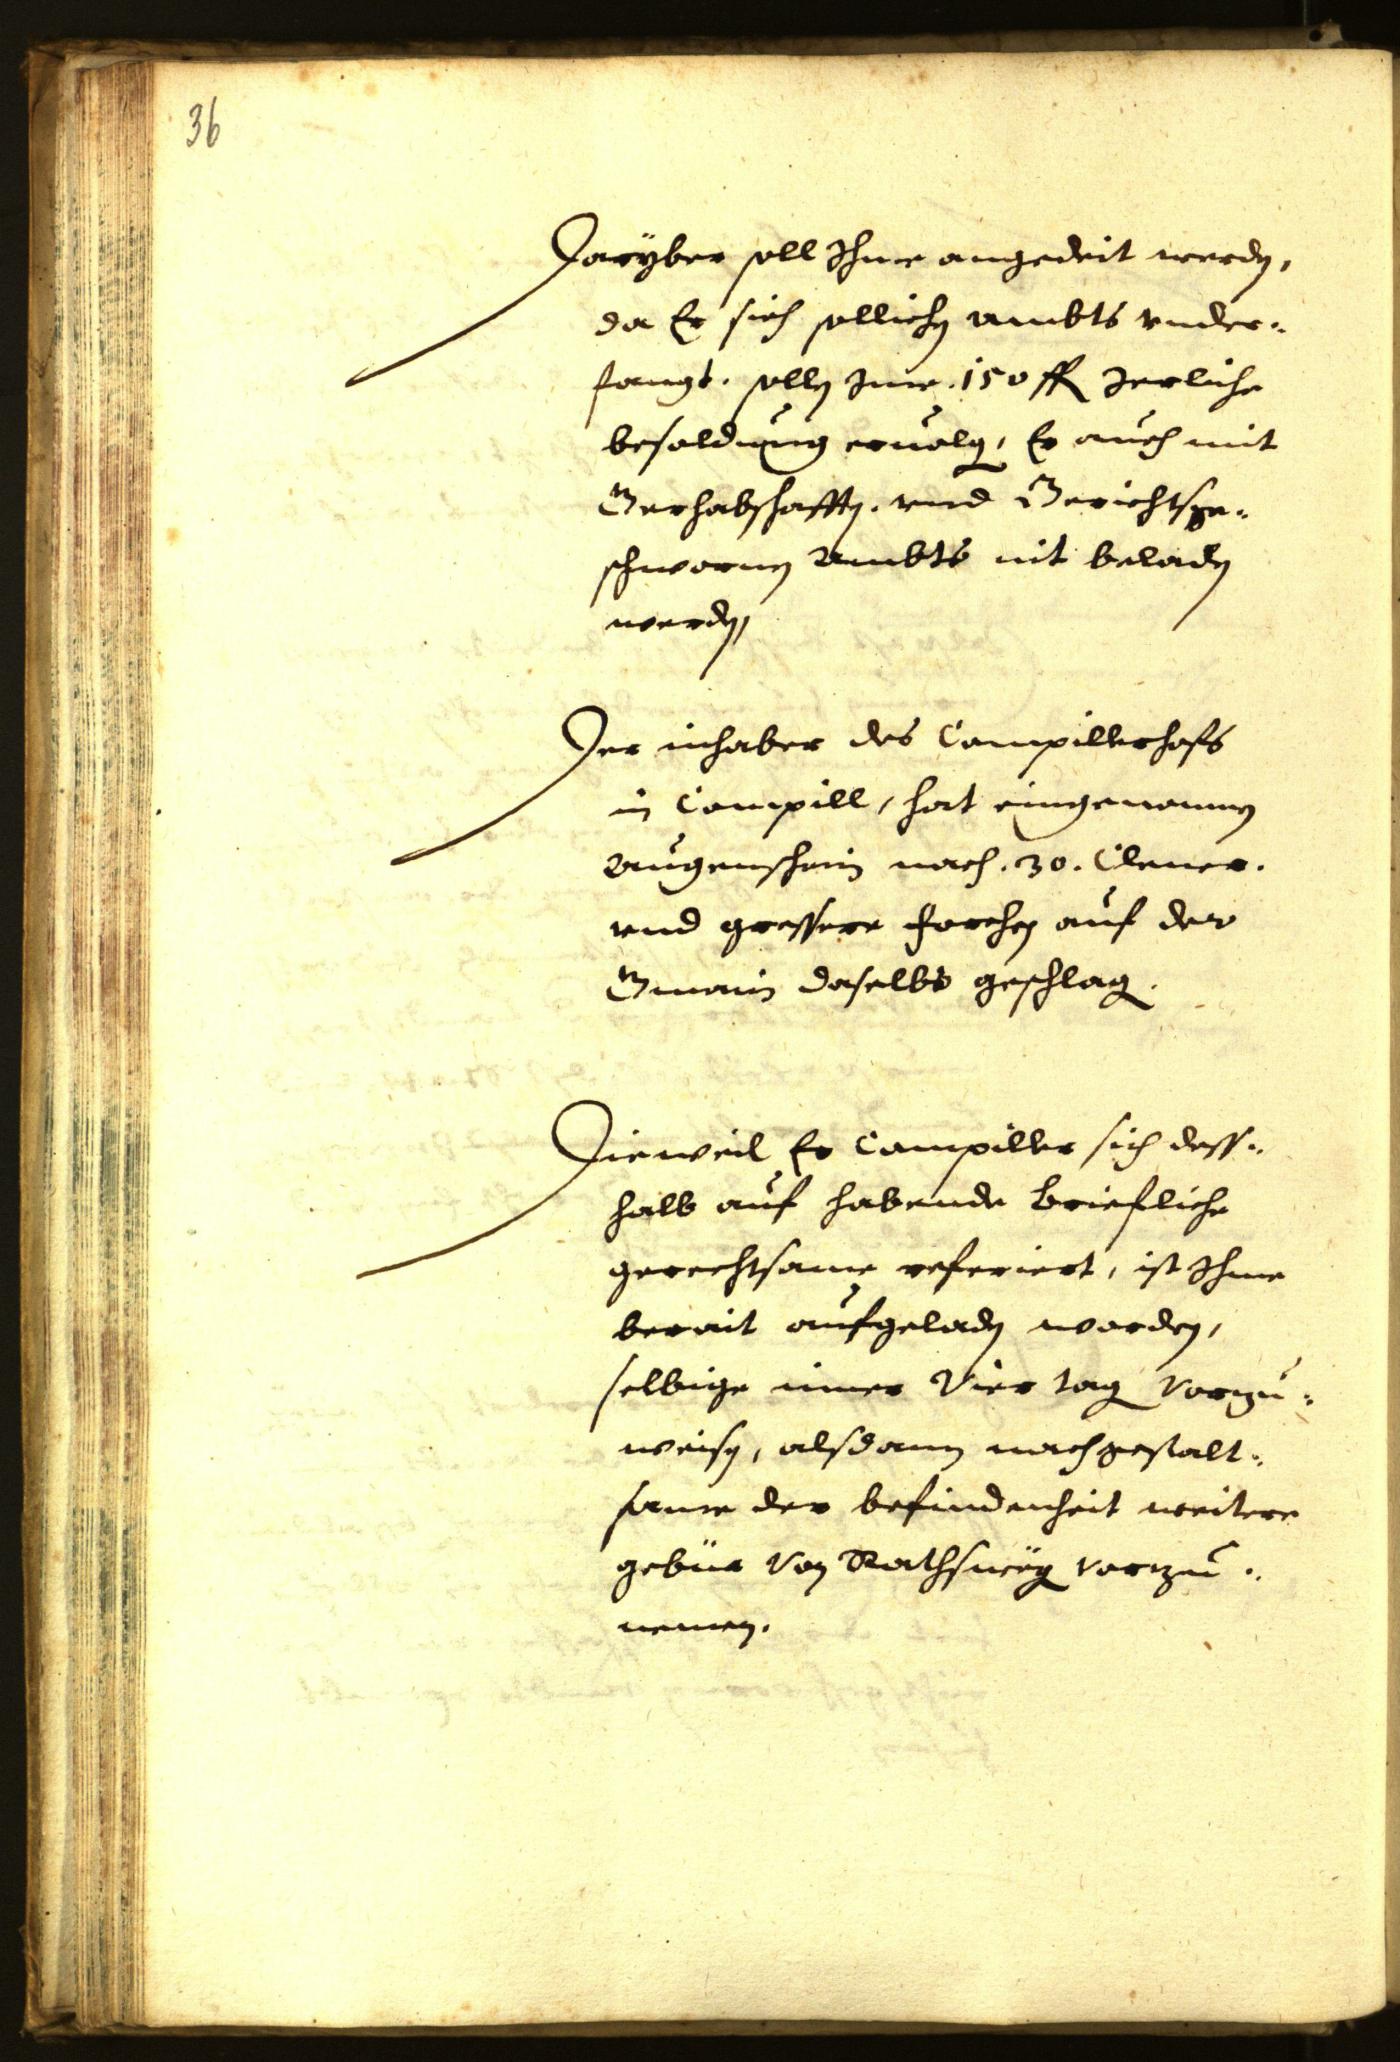 36
Darÿber soll Ihme angedeit werden,
da Er sich sollichen ambts vnder-
fangt. sollen Ime. 150 ff Jerliche
besoldnung eruolg, Er auch mit
Gerhabschafften. vnd Gerichtsge-
schwornen Ambts nit beladen
werden,
Der inhaber des Campillerhofs
in Campill, hat eingenomnen
Augenschein nach. 30. Clener.
vnd grossere forchen auf der
Gmain daselbs geschlag.
Dieweil Er Campiller sich dess-
halb auf habende briefliche
gerechtsame referiert, ist Ihme
berait aufgeladen worden,
selbige inner Vier tag vorzu-
weisen, alsdann nachgestalt-
same der befindenheit weitere
gebür von Rathsweg vorzu-
nemen.